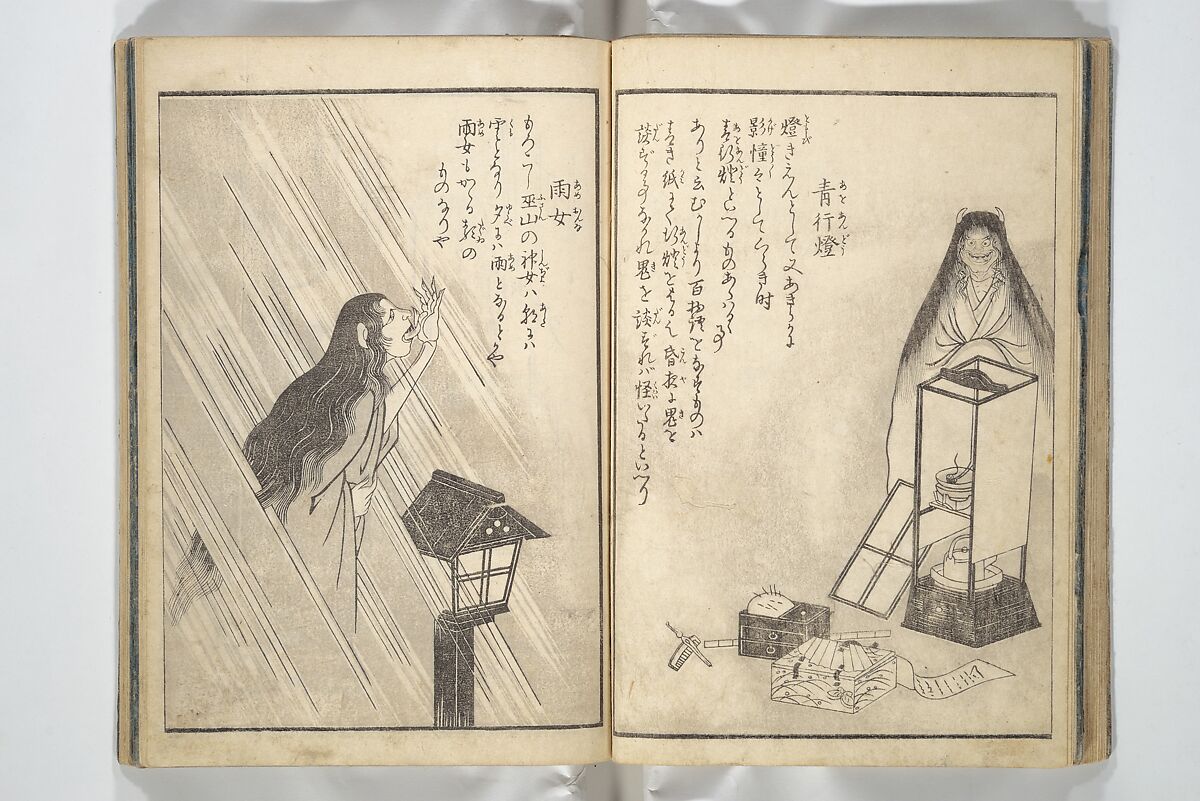 青行燈
燈きえんとして又あきらかに
影憧々としてくらき時
青行燈といへるものあらはるゝ事
ありと云むかしより百物語をなすものハ
青き紙にて行燈をはる也昏夜に鬼を
談ずる事なかれ鬼を談ずれバ怪いたるといへり
雨女
もろこし巫山の神女ハ朝にハ
雲となり夕にハ雨となるとかや
雨女もかゝる類の
ものなりや